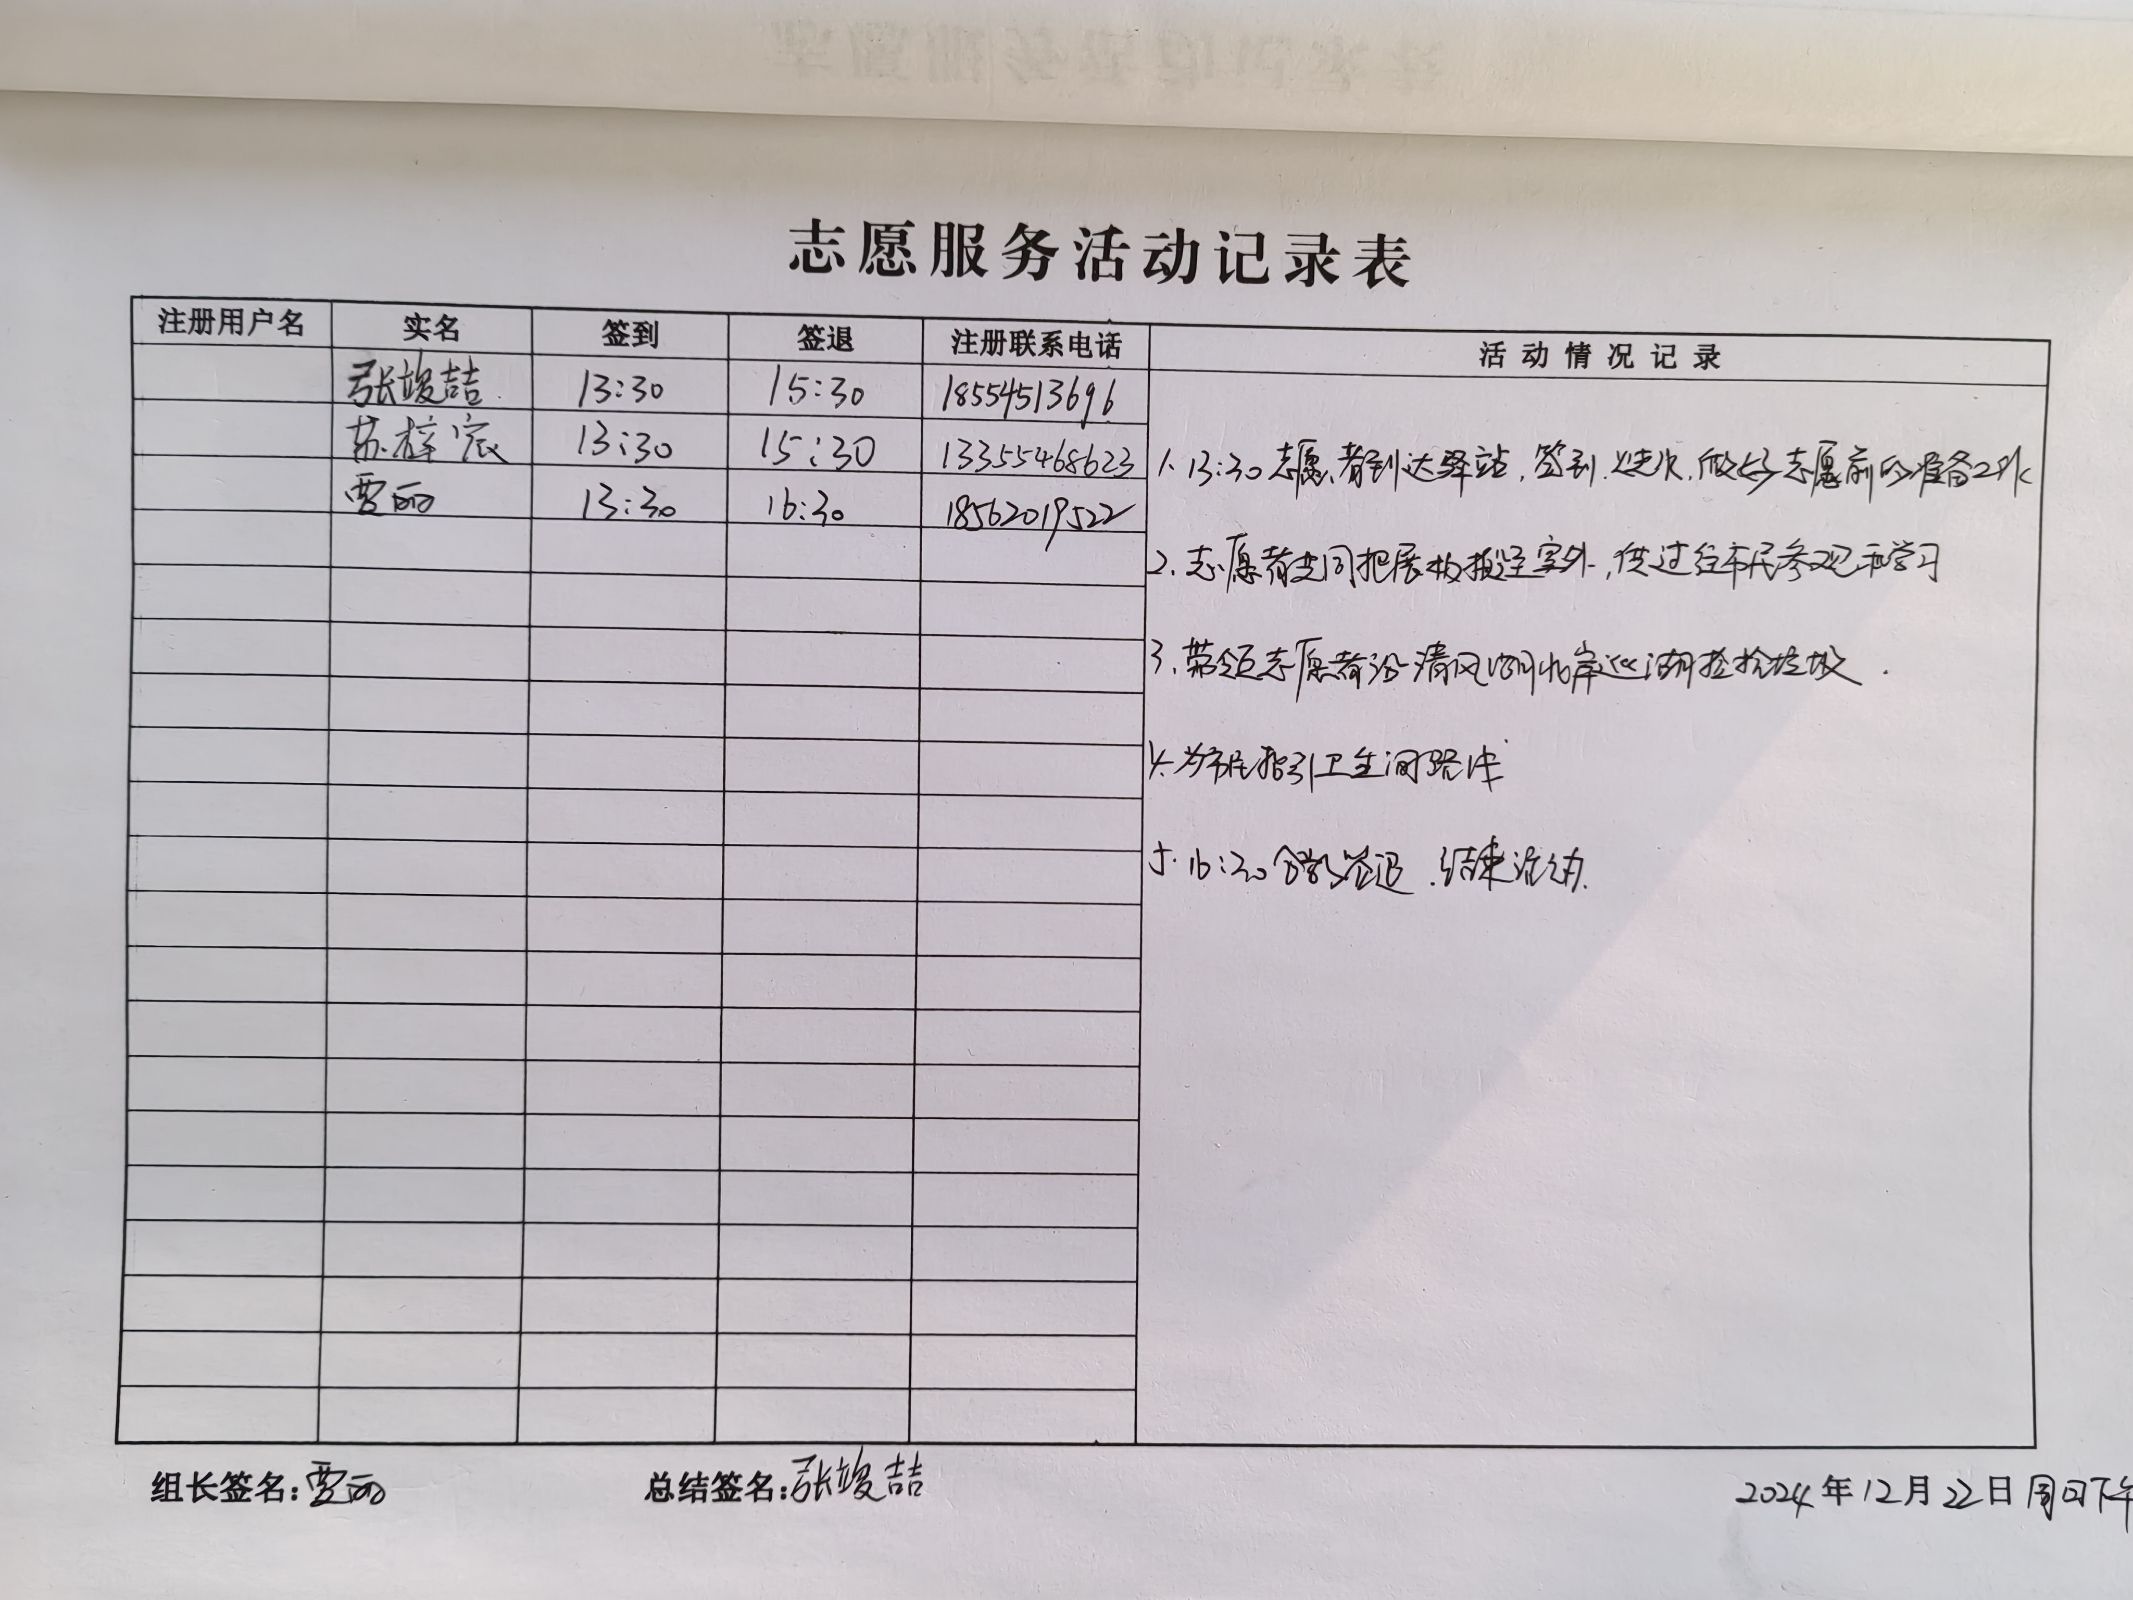 志愿服务活动记录表
注册用户名 实名 签到 签退 注册联系电话 活动情况记录
张竣喆 13:30 15:30 18554513696
苏梓宸 13:30 15:30 13355468623
贾丽 13:30 16:30 18562019522
1. 13:30志愿者到达驿站,签到,做好志愿前的准备工作
2. 志愿者共同把展板摆至室外,供过往市民参观和学习
3. 带领志愿者沿清风湖北岸巡湖捡拾垃圾.
4. 为市民指引卫生间路线
5. 16:30 签退.结束活动.
组长签名:贾丽 总结签名:张竣喆 2024年12月22日周日下午